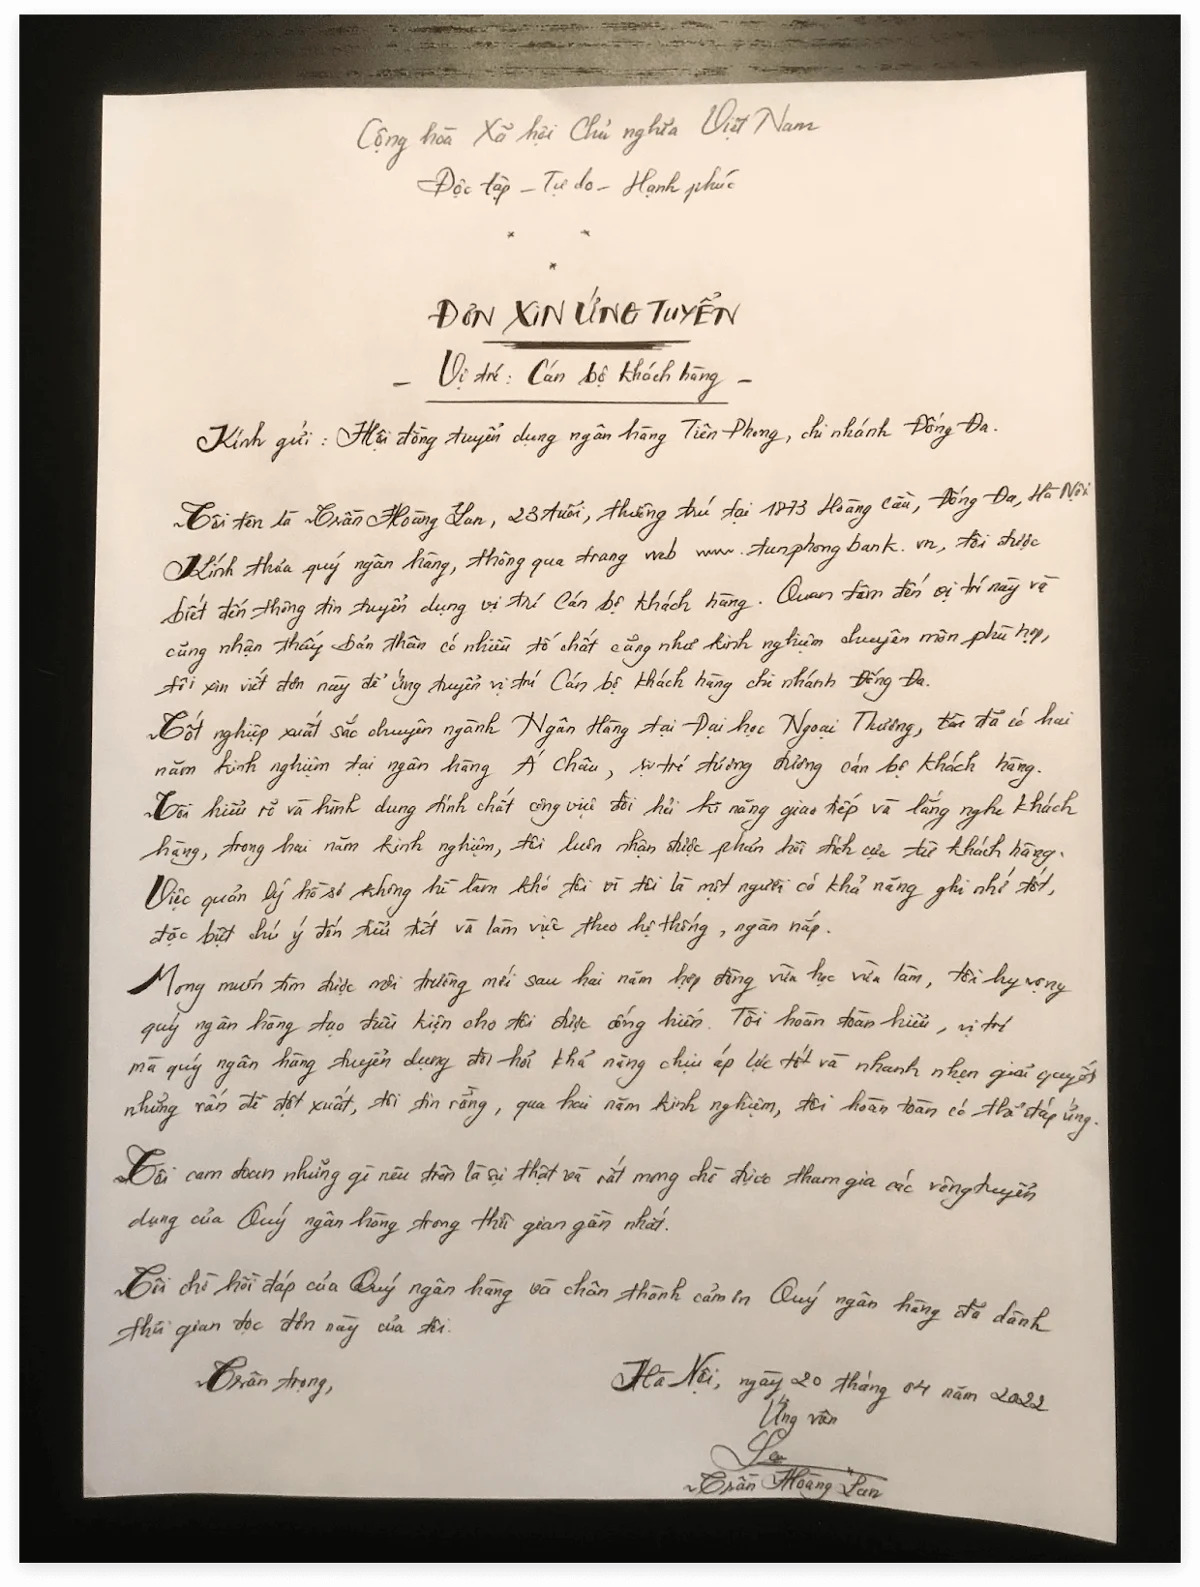 Cộng hòa Xã hội Chủ nghĩa Việt Nam
Độc lập - Tự do - Hạnh phúc
* *
*
ĐƠN XIN ỨNG TUYỂN
- Vị trí: Cán bộ khách hàng -
Kính gửi : Hội đồng tuyển dụng ngân hàng Tiên Phong, chi nhánh Đống Đa.
Tôi tên là Trần Hoàng Lan, 23 tuổi, thường trú tại 1873 Hoàng Cầu, Đống Đa, Hà Nội
Kính thưa quý ngân hàng, thông qua trang web www.tienphongbank.vn, tôi được
biết đến thông tin tuyển dụng vị trí Cán bộ khách hàng. Quan tâm đến vị trí này và
cũng nhận thấy bản thân có nhiều tố chất cũng như kinh nghiệm chuyên môn phù hợp,
tôi xin viết đơn này để ứng tuyển vị trí Cán bộ khách hàng chi nhánh Đống Đa.
Tốt nghiệp xuất sắc chuyên ngành Ngân Hàng tại Đại học Ngoại Thương, tôi đã có hai
năm kinh nghiệm tại ngân hàng Á Châu, vị trí tương đương cán bộ khách hàng.
Tôi hiểu rõ và hình dung tính chất công việc đòi hỏi kĩ năng giao tiếp và lắng nghe khách
hàng, trong hai năm kinh nghiệm, tôi luôn nhận được phản hồi tích cực từ khách hàng.
Việc quản lý hồ sơ không hề làm khó tôi vì tôi là một người có khả năng ghi nhớ tốt,
đặc biệt chú ý đến tiểu tiết và làm việc theo hệ thống, ngăn nắp.
Mong muốn tìm được môi trường mới sau hai năm hợp đồng vừa học vừa làm, tôi hy vọng
quý ngân hàng tạo điều kiện cho tôi được cống hiến. Tôi hoàn toàn hiểu, vị trí
mà quý ngân hàng tuyển dụng đòi hỏi khả năng chịu áp lực tốt và nhanh nhẹn giải quyết
những vấn đề đột xuất, tôi tin rằng, qua hai năm kinh nghiệm, tôi hoàn toàn có thể đáp ứng.
Tôi cam đoan những gì nêu trên là sự thật và rất mong chờ được tham gia các vòng tuyển
dụng của Quý ngân hàng trong thời gian gần nhất.
Tôi chờ hồi đáp của Quý ngân hàng và chân thành cảm ơn Quý ngân hàng đã dành
thời gian đọc đơn này của tôi.
Trân trọng,
Hà Nội, ngày 20 tháng 04 năm 2022
Ứng viên
Lan
Trần Hoàng Lan